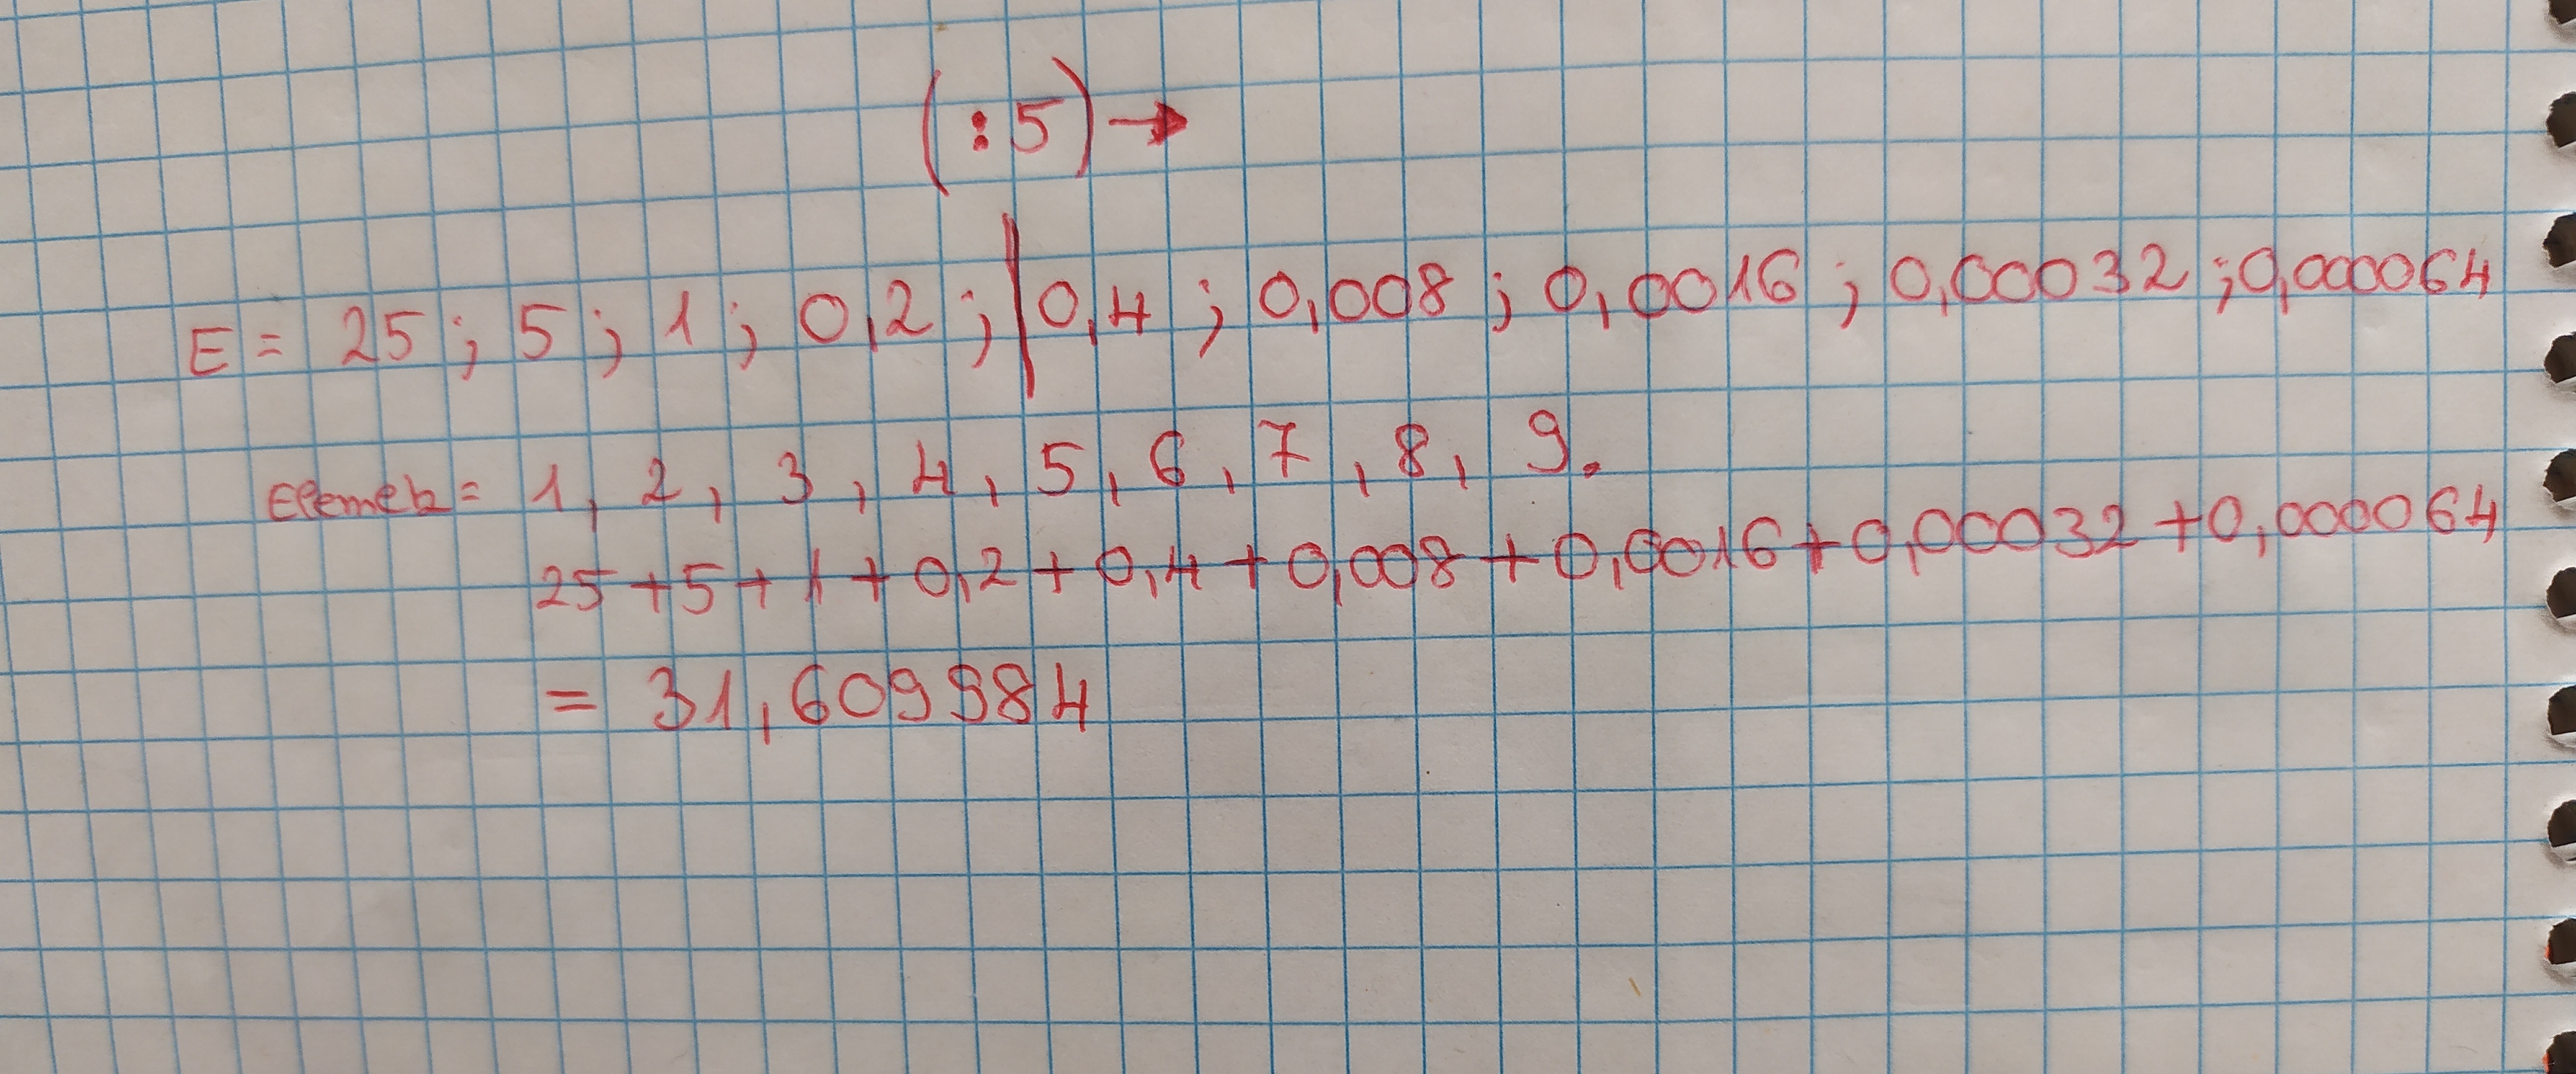 (:5)→
E = 25; 5; 1; 0,2; | 0,4; 0,008; 0,0016; 0,00032; 0,000064
Elemek = 1, 2, 3, 4, 5, 6, 7, 8, 9.
25+5+1+0,2+0,4+0,008+0,0016+0,00032+0,000064
= 31,609984